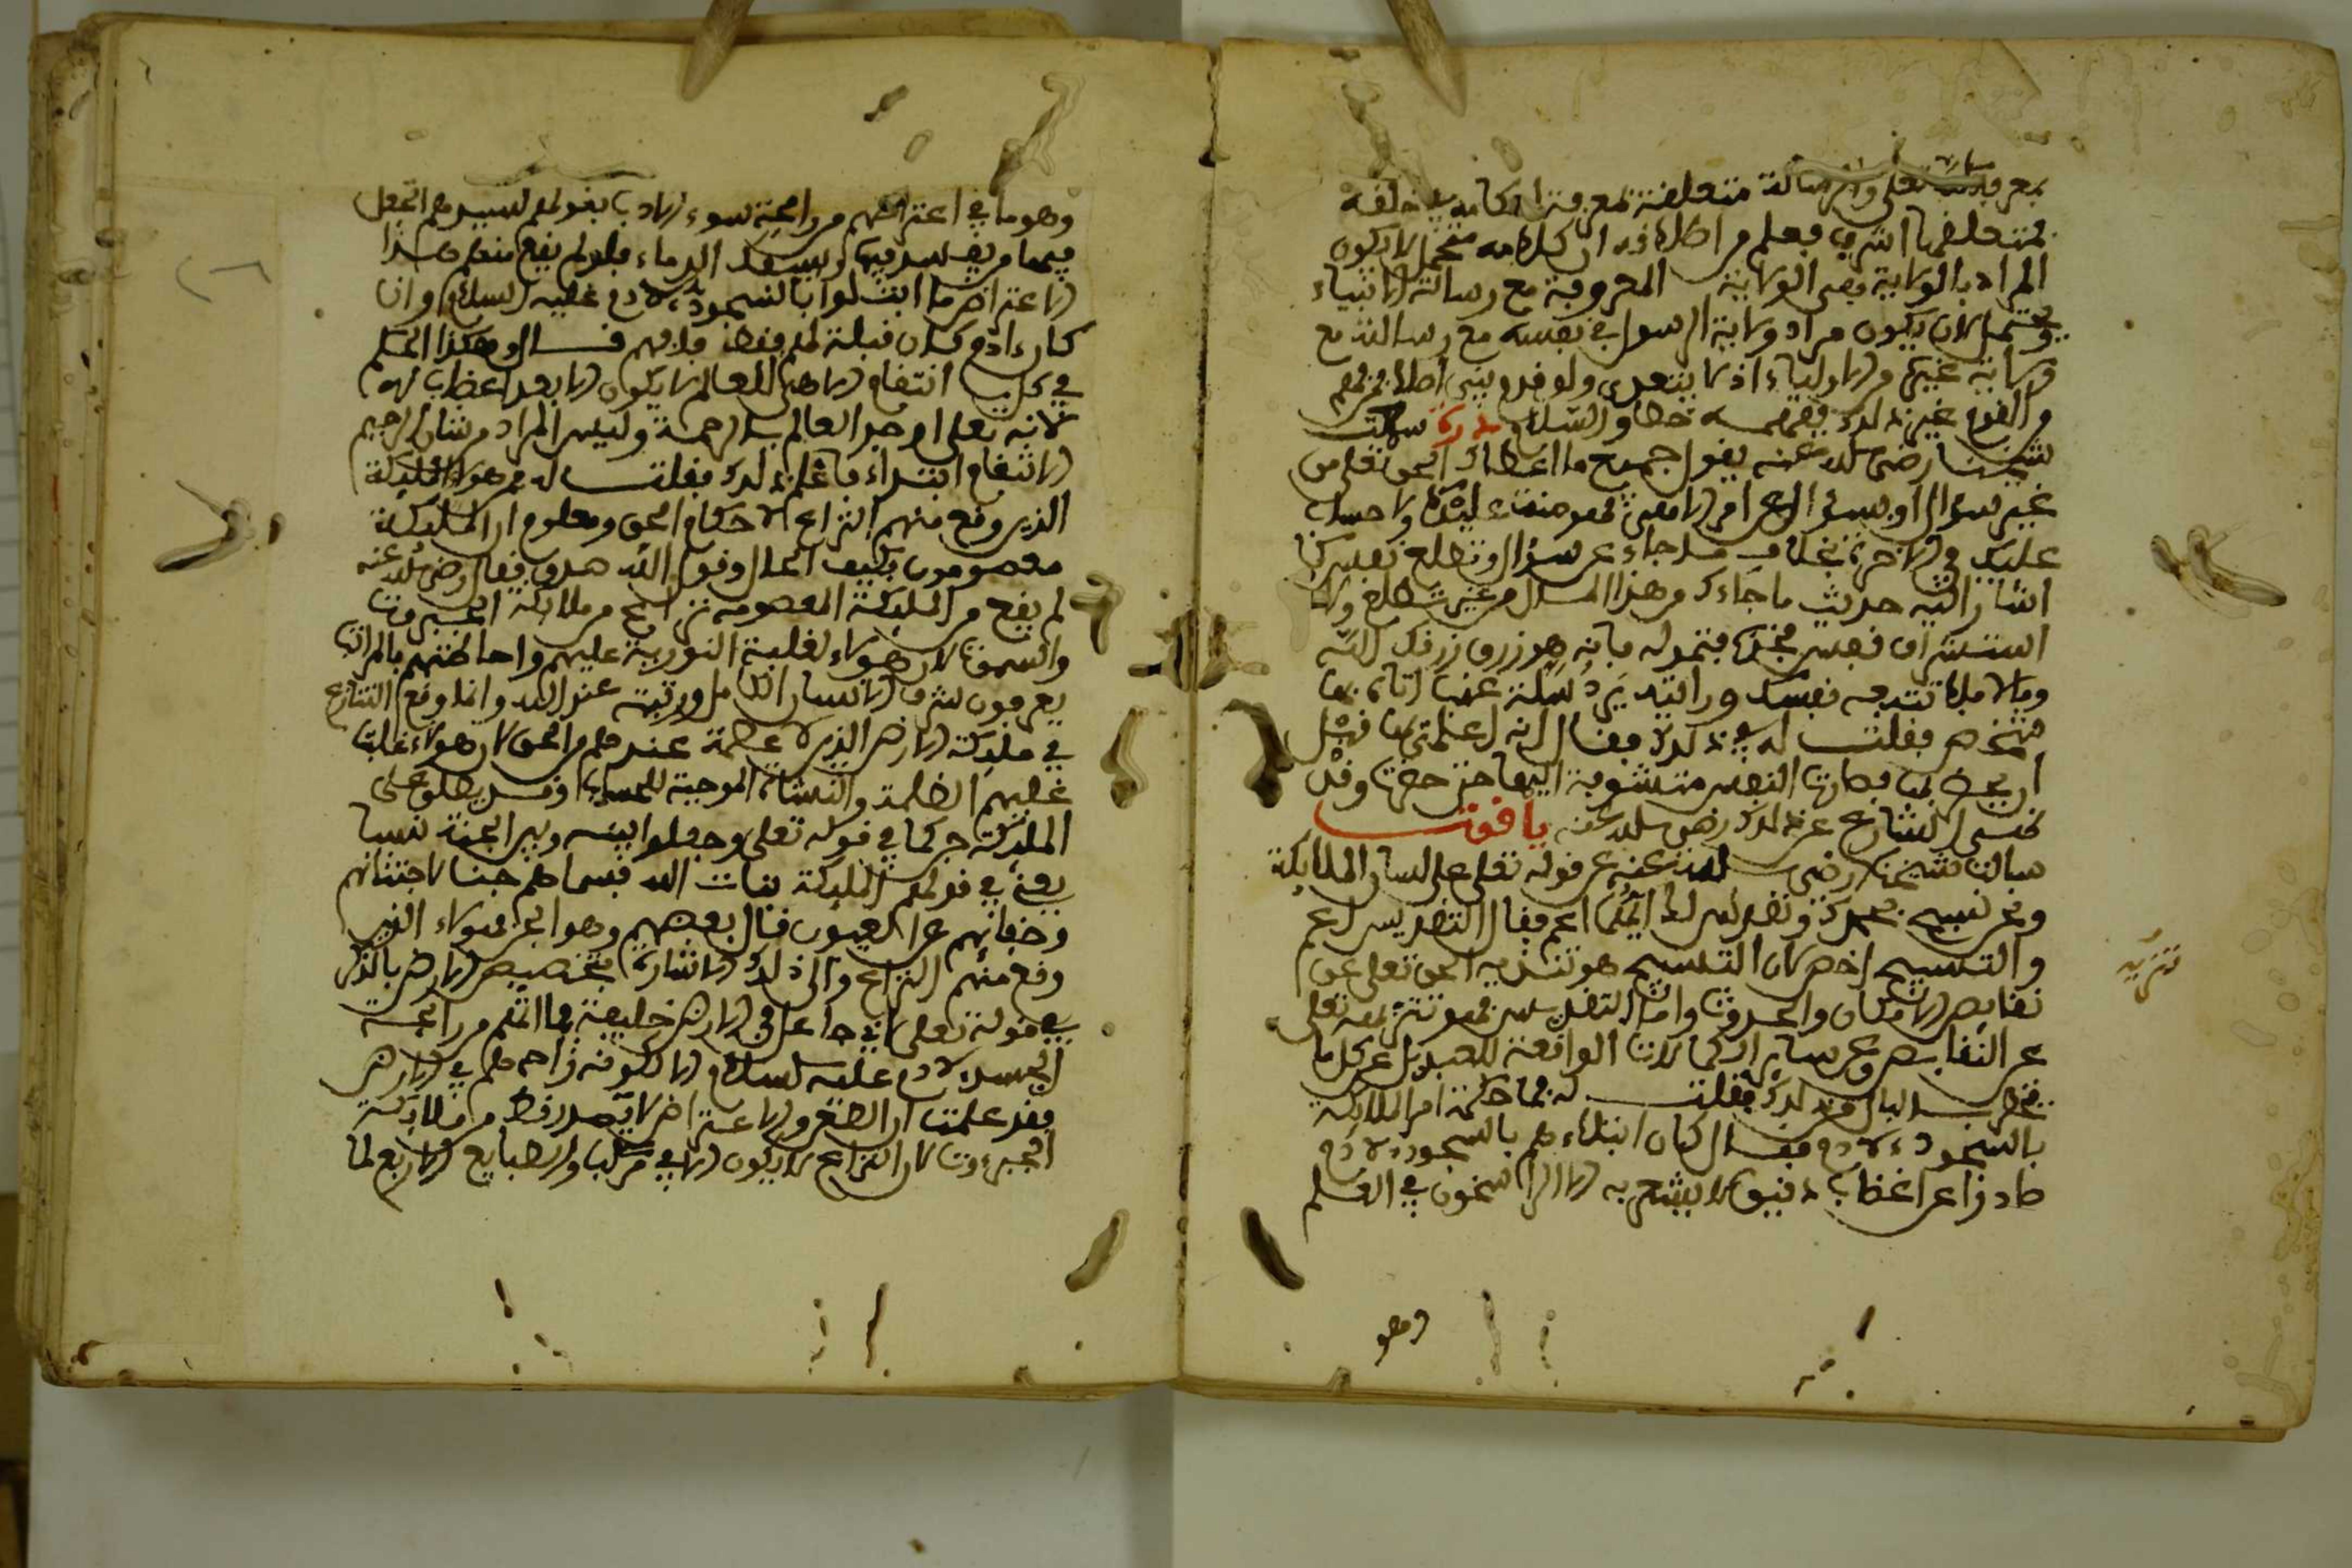 بمعرفة الله تعلى والرسالة متعلقة بمعرفة احكامه في خلقه
المراد بالولاية هي الولاية المعروفة مع رسالة الانبياء
ويحتمل ان يكون مراد ولاية الرسول في نفسه مع رسالته مع
ولاية غيره من الاولياء اذ لا يتعدى ولو قدم نبي اصلا فمن فهم
من القوم غير ذلك ففهمه خطا والسلام درة سمعت
شيخنا رضي الله عنه يقول جميع ما اعطاك الحق تعلى من
غير سؤال او بسؤال عن امر الاهي فهو منة عليك ولا حساب
عليك في الاخرة بخلاف ما جاء عن سؤال وتطلع نفس كما
اشار اليه حديث ما جاءك من هذا المال من غير تطلع ولا
استشراف نفس فخذه فتموله فانه هو رزق رزقك الله
وما لا فلا تتبعه نفسك ورايته يرد سلة عنب اتاه بها
شخص فقلت له في ذلك فقال انه اعلمني بها قبل
ان يحضر بها فصارت النفس متشوفة اليها حتى حضرت وقد
نهى الشارع عن ذلك رضي الله عنه ياقوت
سالت شيخنا رضي الله عنه عن قوله تعلى على لسان الملايكة
ونحن نسبح بحمدك ونقدس لك ايهما اعم فقال التقديس اعم
والتسبيح اخص لان التسبيح هو تنزيه الحق تعلى عن
نقايص الامكان والحدوث واما التقديس فهو تنزيهه تعلى
عن النقايص وعن ساير الكمالات الواقعة للعبد بل عن كل ما
يخطر بالبال من ذلك فقلت له فما حكمة امر الملايكة
بالسجود لادم فقال كان ابتلاء لهم بالسجود لادم
صادرا عن اغضاب دقيق لا يشعر به الا الراسخون في العلم
تنزيه
وهو
وهو ما في اعتراضهم من رايحة سوء الادب بقولهم لسيدهم اتجعل
فيها من يفسد فيها ويسفك الدماء فلو لم يقع منهم هذا
الاعتراض ما ابتلوا بالسجود لادم عليه السلام وان
كان ءادم كان قبلة لهم فقط فافهم قال وهكذا الحكم
في كل انتقام الاهي للعالم لا يكون الا بعد اغضاب له
لانه تعلى اوجد العالم بالرحمة وليس المراد من شان الرحيم
الانتقام ابتداء فاعلم ذلك فقلت له فمن هؤلاء الملايكة
الذين وقع منهم النزاع لاحكام الحق ومعلوم ان الملايكة
معصومون بكيف الحال وقول الله صدق فقال رضي الله عنه
لم يقع من الملايكة المعصومة نزاع من ملايكة الجبروت
والسموات لان هؤلاء لغلبة النورية عليهم واحاطتهم بالمراتب
يعرفون شرف الانسان الكامل ورتبته عند الله وانما وقع التنازع
في ملايكة الارض الذين لا عصمة عندهم من الحق لان هؤلاء غلبت
عليهم الظلمة والنشاة الموجبة للحجاب وقد يطلق على
الملايكة جن كما في قوله تعلى وجعلوا بينه وبين الجنة نسبا
يعني في قولهم الملايكة بنات الله فسماهم جنا لاجتنانهم
وخفائهم عن العيون قال بعضهم وهو الحق هؤلاء الذين
وقع منهم النزاع والى ذلك الاشارة بتخصيص الارض بالذكر
في قوله تعلى اني جاعل في الارض خليفة فما اشم من رايحة
الحسد لادم عليه السلام الا لكونه زاحمهم في الارض
فقد علمت ان الطعن والاعتراض لا يصدر قط من ملايكة
الجبروت لان النزاع لا يكون الا في مركب والطبايع الاربع لما